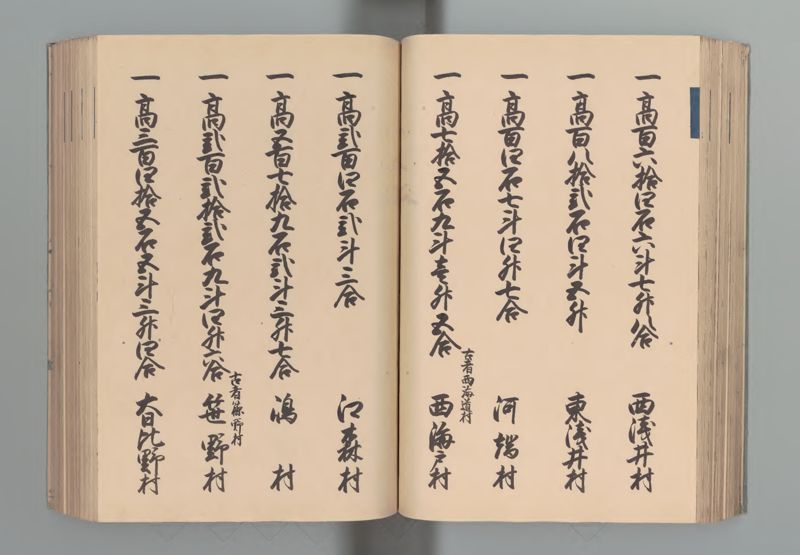 一 高百六拾四石六斗七升八合 西浅井村
一 高百八拾弐石四斗五升 東浅井村
一 高百四石七斗四升七合 河端村
一 高七拾五石九斗壱升五合 西海戸村
古者西海道村
一 高弐百四石弐斗三合 江森村
一 高五百七拾九石弐斗三升七合 鴻村
一 高弐百弐拾弐石九斗四升六合 笹野村
古者篠野村
一 高三百四拾五石五斗三升四合 大日比野村